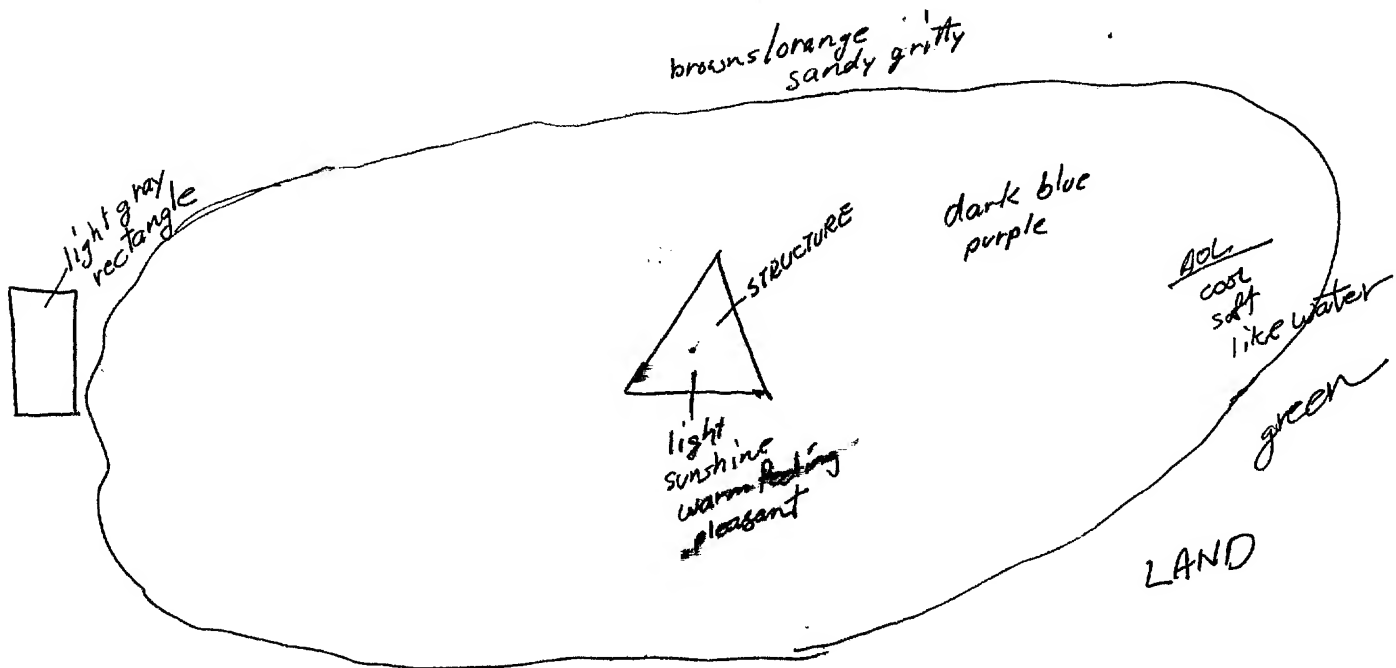 browns/orange
sandy gritty
light gray
rectangle
STRUCTURE
dark blue
purple
AOL
cool
soft
like water
green
light
sunshine
warm feeling
pleasant
LAND